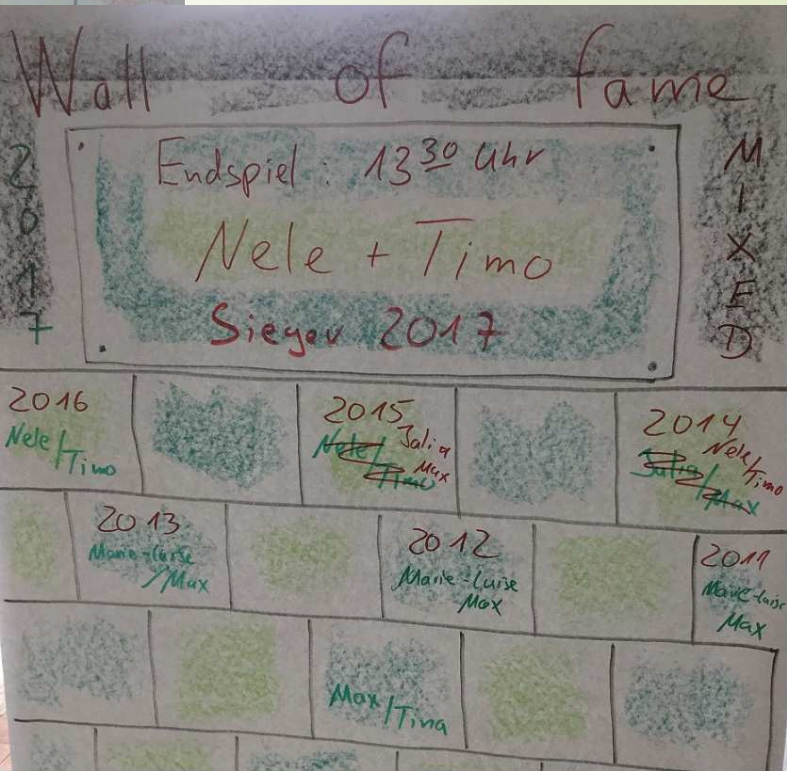 Wall of fame
2017
MIXED
Endspiel: 13 30 Uhr
Nele + Timo
Sieger 2017
2016
Nele/Timo
2015
Nele/Timo
Julia
Max
2014
Julia/Max
Nele/
Timo
2013
Marie-Luise
/Max
2012
Marie-Luise
Max
2011
Marie-Luise
Max
Max/Tina